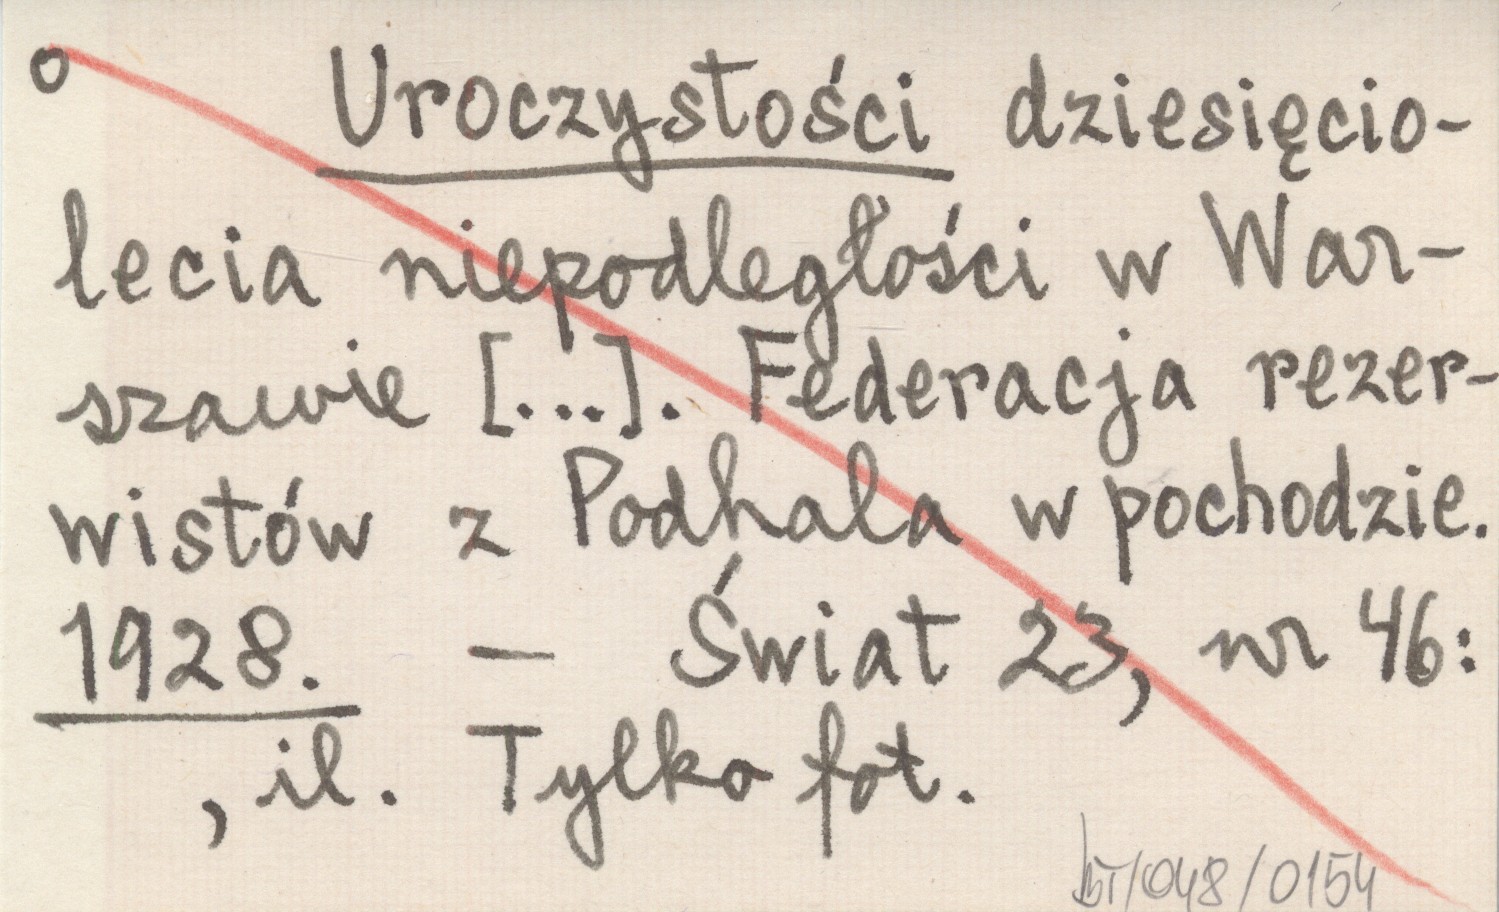 o Uroczystości dziesięcio-
lecia niepodległości w War-
szawie [...]. Federacja rezer-
wistów z Podhala w pochodzie.
1928. — Świat 23, nr 46:
, il. Tylko fot.
/048/0154